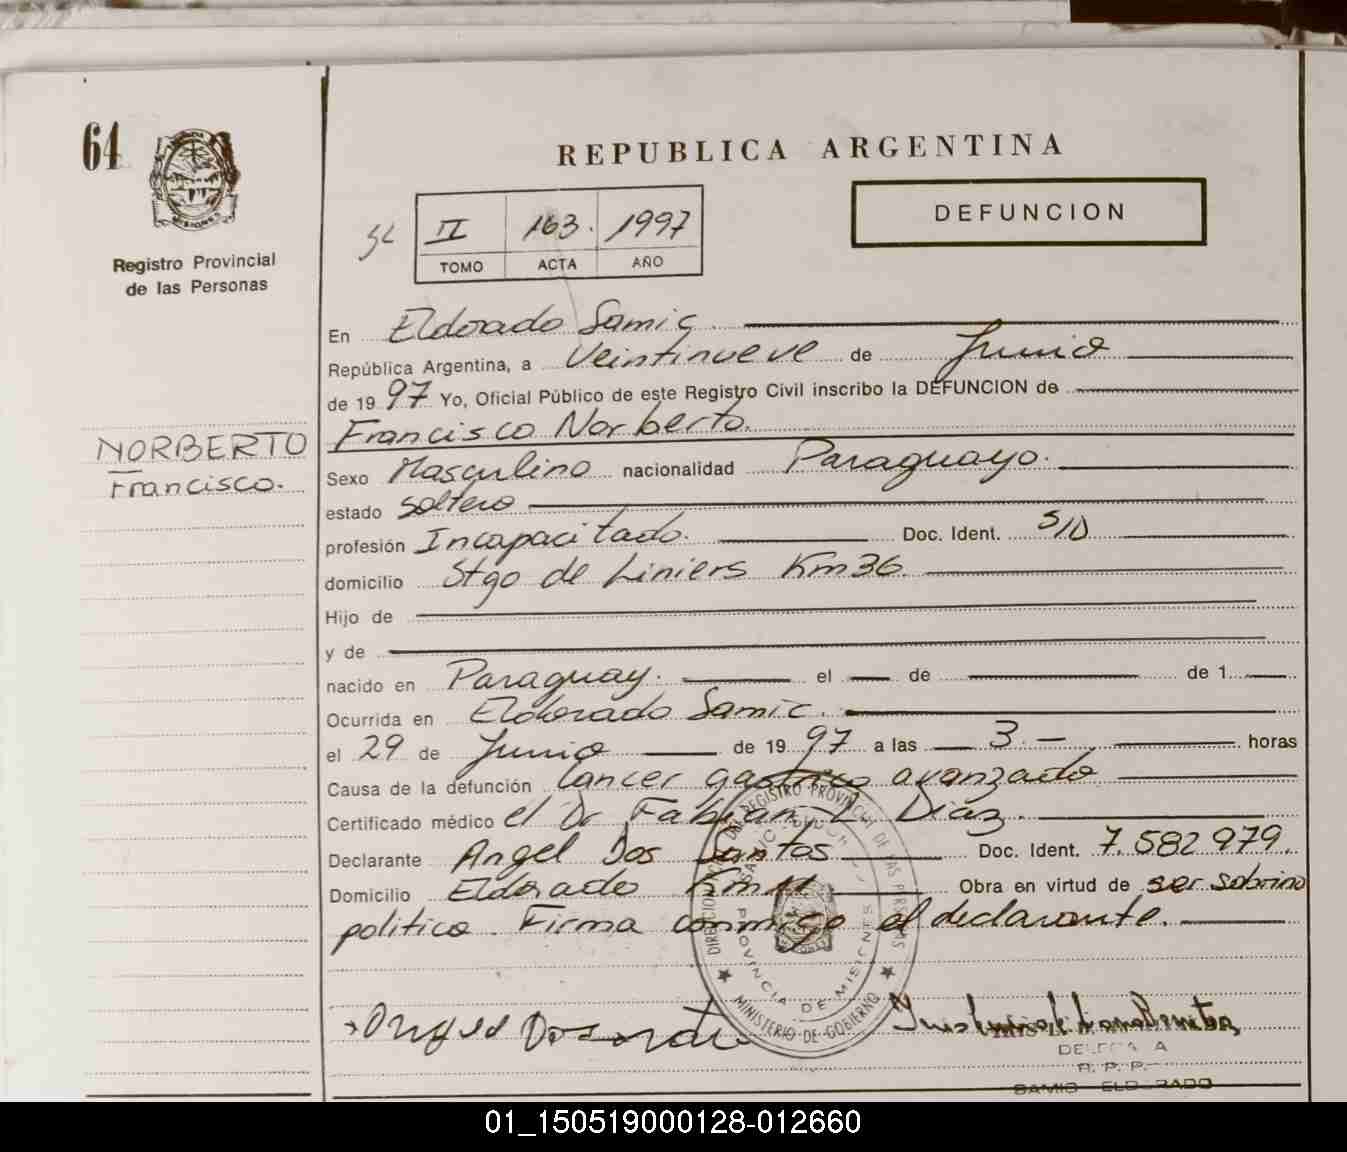 64
REPUBLICA ARGENTINA
DEFUNCION
II 163. 1997
TOMO ACTA AÑO
Registro Provincial
de las Personas
En Eldorado Samic.
República Argentina, a Veintinueve de Junio
de 1997 Yo, Oficial Público de este Registro Civil inscribo la DEFUNCION de
NORBERTO
Francisco.
Francisco Norberto.
Sexo Masculino nacionalidad Paraguayo.
estado Soltero
profesión Incapacitado. Doc. Ident. S/D
domicilio Stgo de Liniers Km 36.
Hijo de
y de
nacido en Paraguay. el de de 1
Ocurrida en Eldorado Samic.
el 29 de Junio de 1997 a las 3.- horas
Causa de la defunción Cancer gastrico avanzado
Certificado médico el Dr Fabian Diaz.
Declarante Angel Dos Santos Doc. Ident. 7.582979.
Domicilio Eldorado Km 11 Obra en virtud de ser sobrino
politico. Firma conmigo el declarante.
DEL REGISTRO PROVINCIAL DE LAS PERSONAS
PROVINCIA DE MISIONES
MINISTERIO DE GOBIERNO
R. P. P.
SAMIC ELDORADO
01_150519000128-012660